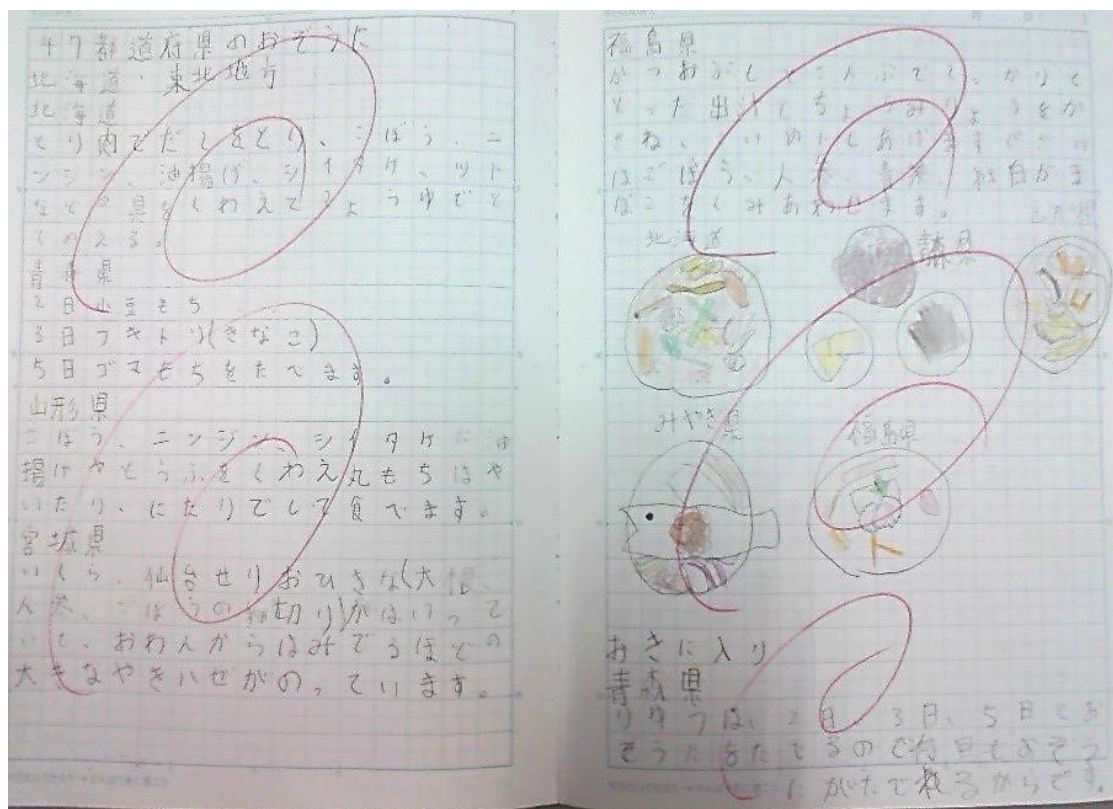 47都道府県のおぞうに
北海道・東北地方
北海道
とり肉でだしをとり、ごぼう、ニ
ンジン、油揚げ、シイタケ、ツト
などの具をくわえてしょうゆでと
とのえる。
青森県
2日小豆もち
3日フキトリ(きなこ)
5日ゴマもちをたべます。
山形県
ごぼう、ニンジン、シイタケに油
揚げやとうふをくわえ丸もちはや
いたり、にたりでして食べます。
宮城県
いくら、仙台せりおひきな(大根、
人参、ごぼうの切り)がはいって
いて、おわんからはみでるほどの
大きなやきハゼがのっています。
福島県
かつおぶしとこんぶでしっかりと
とった出汁とちょうみりょうをか
さね、
はごぼう、人参、青菜、紅白かま
ぼこをくみあわせます。
北海道
青森県
みやぎ県
福島県
おきに入り
青森県
りゆうは、2日、3日、5日とお
ぞうにをたべるので何日もおぞう
にがたべれるからです。